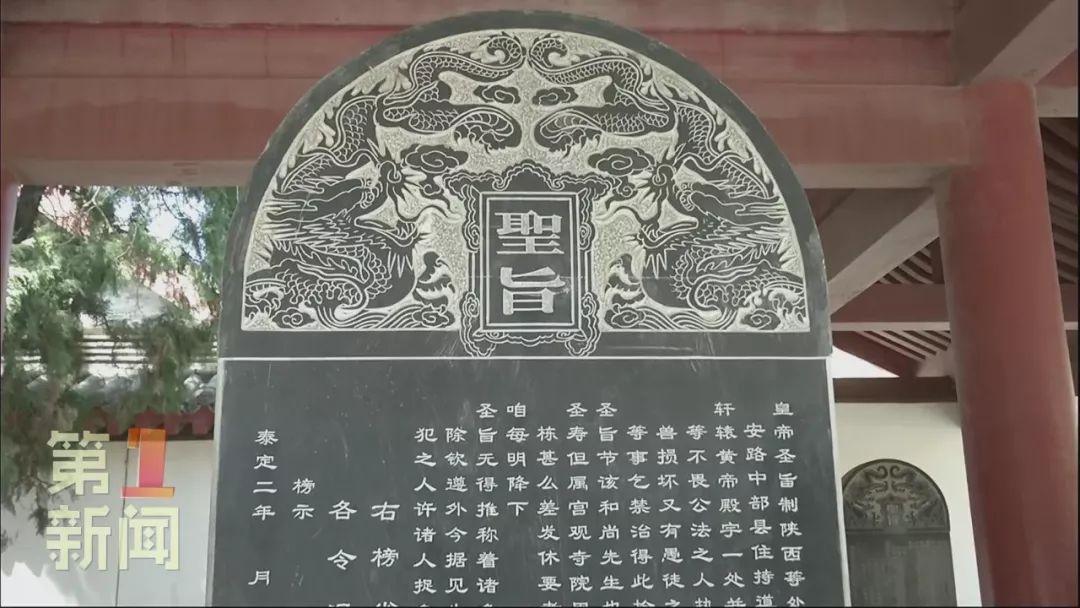 聖旨
皇帝圣旨制陕西等处
安路中部县住持道
轩辕黄帝殿宇一处并
等不畏公法之人执
兽损坏又有愚徒之
等事乞禁治得此
圣旨节该和尚先生也
圣寿但属宫观寺院
栋甚么差发休要者
咱每明降下
圣旨无得推称着诸
除钦遵外今据见
犯之人许诸人捉
右榜
各令
榜示
泰定二年 月
第1
新闻